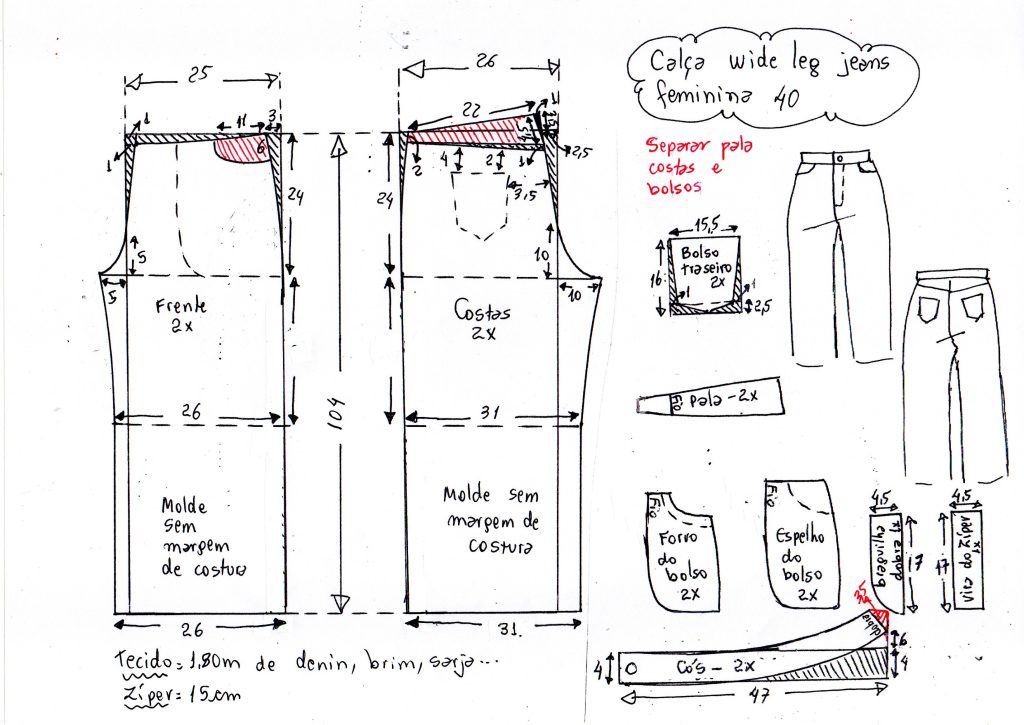 Calça wide leg jeans
feminina 40
Separar pala
costas e
bolsos
25
11
3
1
1
6
24
5
5
Frente
2x
26
Molde
sem
margem
de costura
26
104
26
22
1
2,5
2
4
2
1
3,5
24
10
10
Costas
2x
31
Molde sem
margem de
costura
31.
15,5
16
Bolso
traseiro
2x
1
1
2,5
Fio
Pala - 2x
Fio
Forro
do
bolso
2x
Fio
Espelho
do
bolso
2x
4,5
braguilha
dobra 1x
17
4,5
17
vira do zíper
x1
dobra
6
4
4
Cós - 2x
47
Tecido = 1,80m de denin, brim, sarja...
Zíper = 15cm